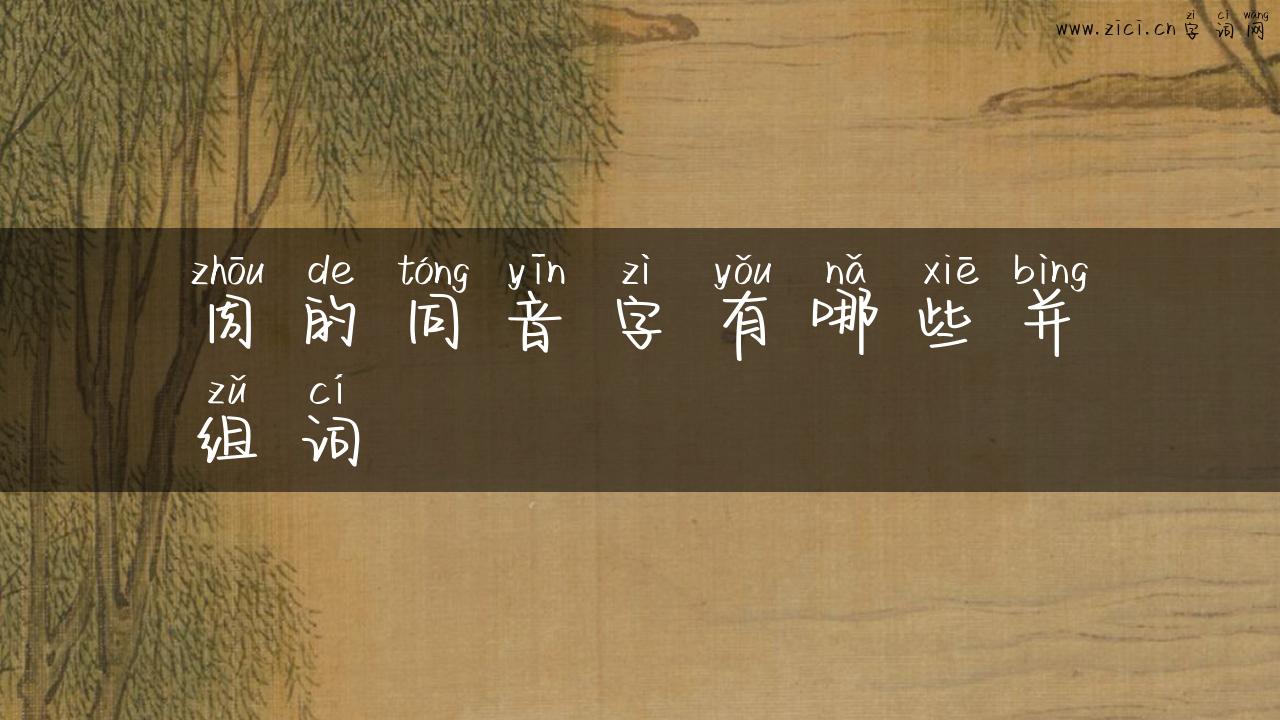 zì cí wǎng
www.zici.cn字词网
zhōu de tóng yīn zì yǒu nǎ xiē bìng
周的同音字有哪些并
zǔ cí
组词